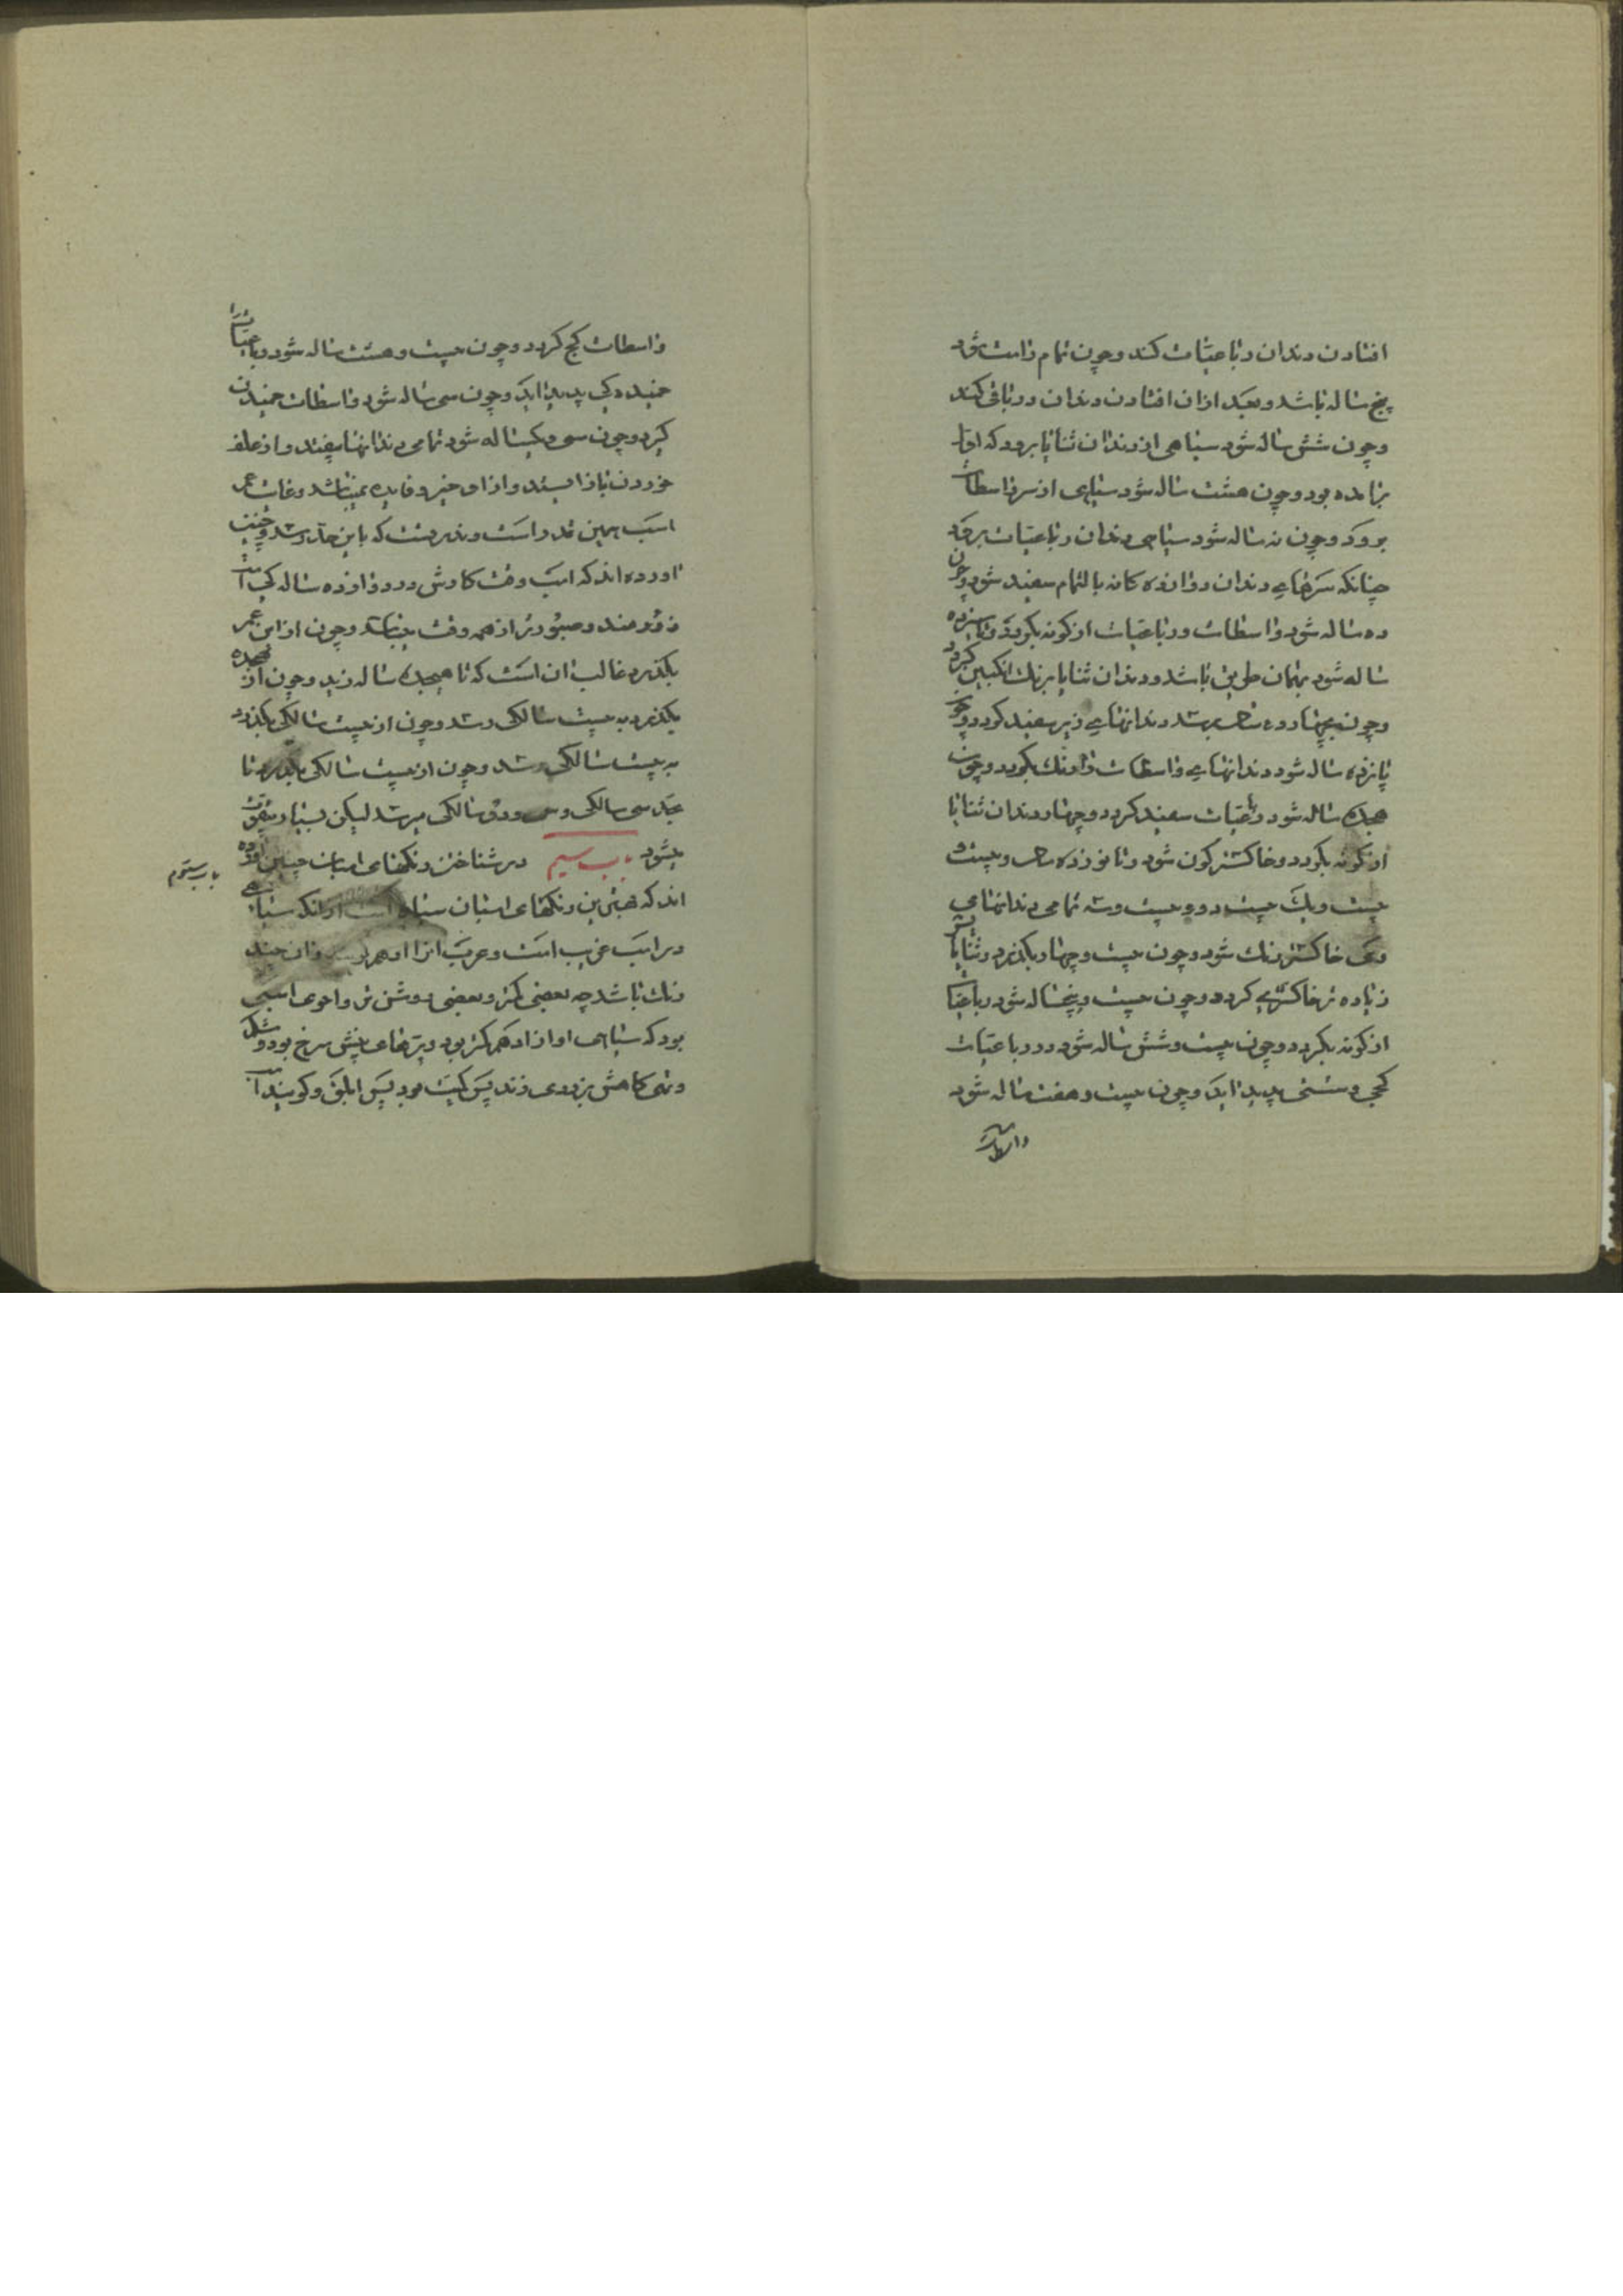 افتادن دندان رباعیات کند و چون تمام راست شود
پنج ساله باشد و بعد از ان افتادن دندان در باقی کند
و چون شش ساله شود سیاهی از دندان ثنایا برود که اول
برامده بود و چون هشت ساله شود سیاهی از سر واسطات
برود و چون نه ساله شود سیاهی دندان رباعیات برود
چنانکه سرهای دندان دوازده کانه بالتمام سفید شود و چون
ده ساله شود واسطات و رباعیات از کونه بکردد و تا سیزده
ساله شود بهمان طریق باشد و دندان ثنایا برنك انکبین کردد
و چون بچهارده سالکی رسد دندانهای زیر سفید کردد و چون
پانزده ساله شود دندانهای واسطات را رنك بکردد و چون
هجده ساله شود رباعیات سفید کردد و چهار دندان ثنایا
از کونه بکردد و خاکستر کون شود و تا نوزده سالکی و بیست و
بیست و یك بیست و دو و بیست و سه تمامی دندانهای
وی خاکستر رنك شود و چون بیست و چهار بکذرد ثنایا بیشتر
زیاده تر خاکستری کردد و چون بیست و پنجساله شود رباعیات
از کونه بکردد و چون بیست و شش ساله شود در رباعیات
کجی و سستی پدید اید و چون بیست و هفت ساله شود
واسطات
واسطات کج کردد و چون بیست و هشت ساله شود رباعیات را
خمیده کی پدید اید و چون سی ساله شود واسطات خمیدن
کیرد و چون سی و یکساله شود تمامی دندانها بیفتد و از علف
خوردن باز ایستد و از او خیر و فایده نباشد و غایت عمر
اسب همین قدر است و ندرتست که باین حد رسد و چنین
اورده اند که اسب وقت کارش در دوازده ساله کی است
زورمند و صبورتر از همه وقت میباشد و چون از این عمر
بکذرد غالب ان است که تا هیجده ساله زید و چون از هجده
بکذرد به بیست سالکی رسد و چون از بیست سالکی بکذرد
به بیست سالکی رسد و چون از بیست سالکی بکذرد تا
بحد سی سالکی و سی و دو سالکی میرسد لیکن بسیار بیقوت
میشود باب سیم در شناختن رنکهای اسبان چنین اورده
باب سیوم
اند که بهترین رنکهای اسبان سیاه است از انکه سیاهی
در اسب غریب است و عرب انرا ادهم وان چند
رنك باشد چه بعضی کمتر و بعضی روشن تر و احوی اسبی
بود که سیاهی او از ادهم کمتر بود و پرهای بینیش سرخ بود و شکل
و تهی کاهش بزردی زند پس کمیت بود پس ابلق و کویند